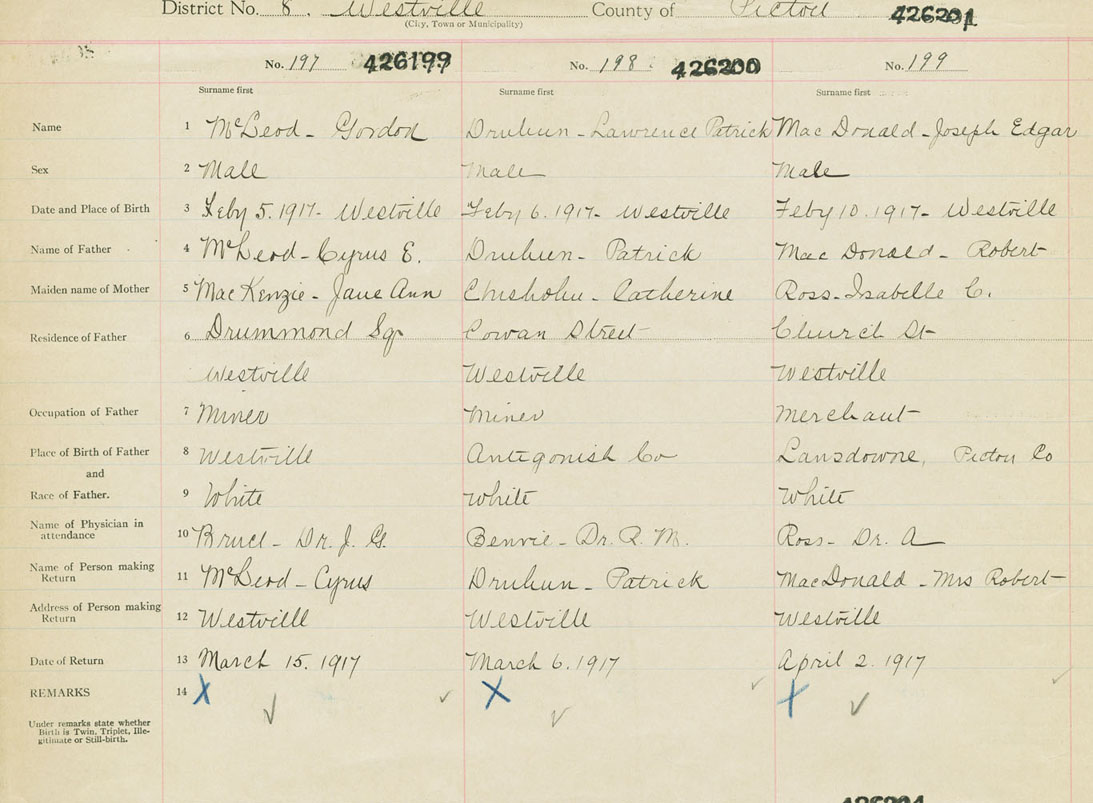 District No. 8. Westville County of Pictou 426201
(City, Town or Municipality)
No. 197 426199 No. 198 426200 No. 199
Surname first Surname first Surname first
Name 1 McLeod - Gordon Druhun - Lawrence Patrick MacDonald - Joseph Edgar
Sex 2 Male Male Male
Date and Place of Birth 3 Feby 5. 1917 - Westville Feby 6. 1917 - Westville Feby 10. 1917 - Westville
Name of Father 4 McLeod - Cyrus E. Druhun - Patrick Mac Donald - Robert
Maiden name of Mother 5 MacKenzie - Jane Ann Chisholm - Catherine Ross - Isabelle C.
Residence of Father 6 Drummond Sq Cowan Street Church St
Westville Westville Westville
Occupation of Father 7 Miner Miner Merchant
Place of Birth of Father 8 Westville Antigonish Co Lansdowne, Pictou Co
and
Race of Father. 9 White White White
Name of Physician in
attendance 10 Bruce - Dr. J. G. Benvie - Dr. R. M. Ross - Dr. A
Name of Person making
Return 11 McLeod - Cyrus Druhun - Patrick MacDonald - Mrs Robert
Address of Person making
Return 12 Westville Westville Westville
Date of Return 13 March 15. 1917 March 6. 1917 April 2. 1917
REMARKS 14 X X X
Under remarks state whether
Birth is Twin, Triplet, Ille-
gitimate or Still-birth.